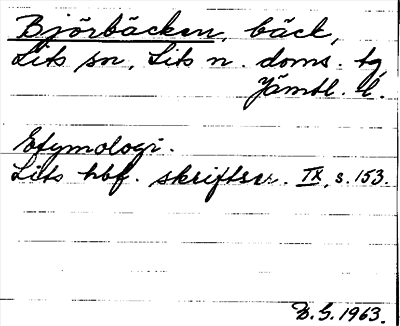 Björbäcken, bäck,
Lits sn, Lits n. doms. tg,
Jämtl. l.
Etymologi.
Lits hbf. skriftser. IX, s. 153.
B. G. 1963.